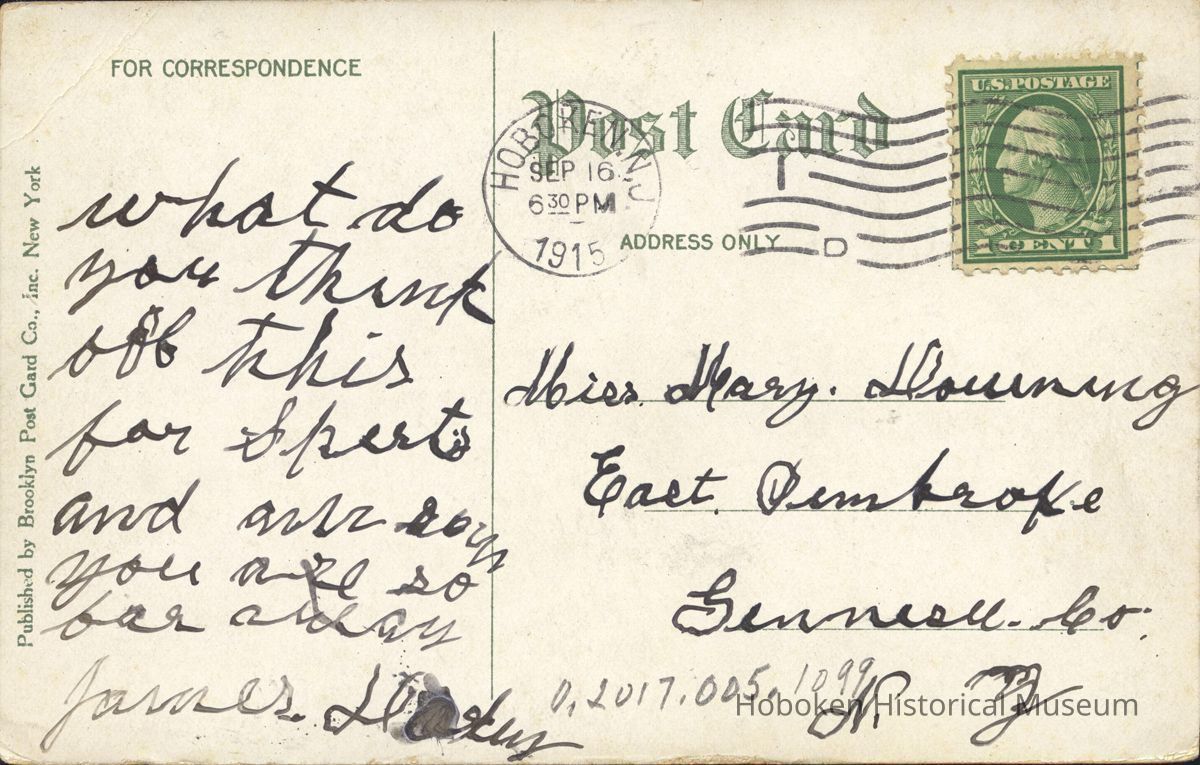 FOR CORRESPONDENCE
what do
you think
off this
for Sports
and
you are so
far away
James
Published by Brooklyn Post Card Co., inc. New York
Post Card
ADDRESS ONLY
HOBOKEN, N.J.
SEP 16
6 30 PM
1915
D
U.S. POSTAGE
1 CENT 1
Miss. Mary. Downing
East. Pembroke
Co.
N. Y
0.2017.005.1099
Hoboken Historical Museum